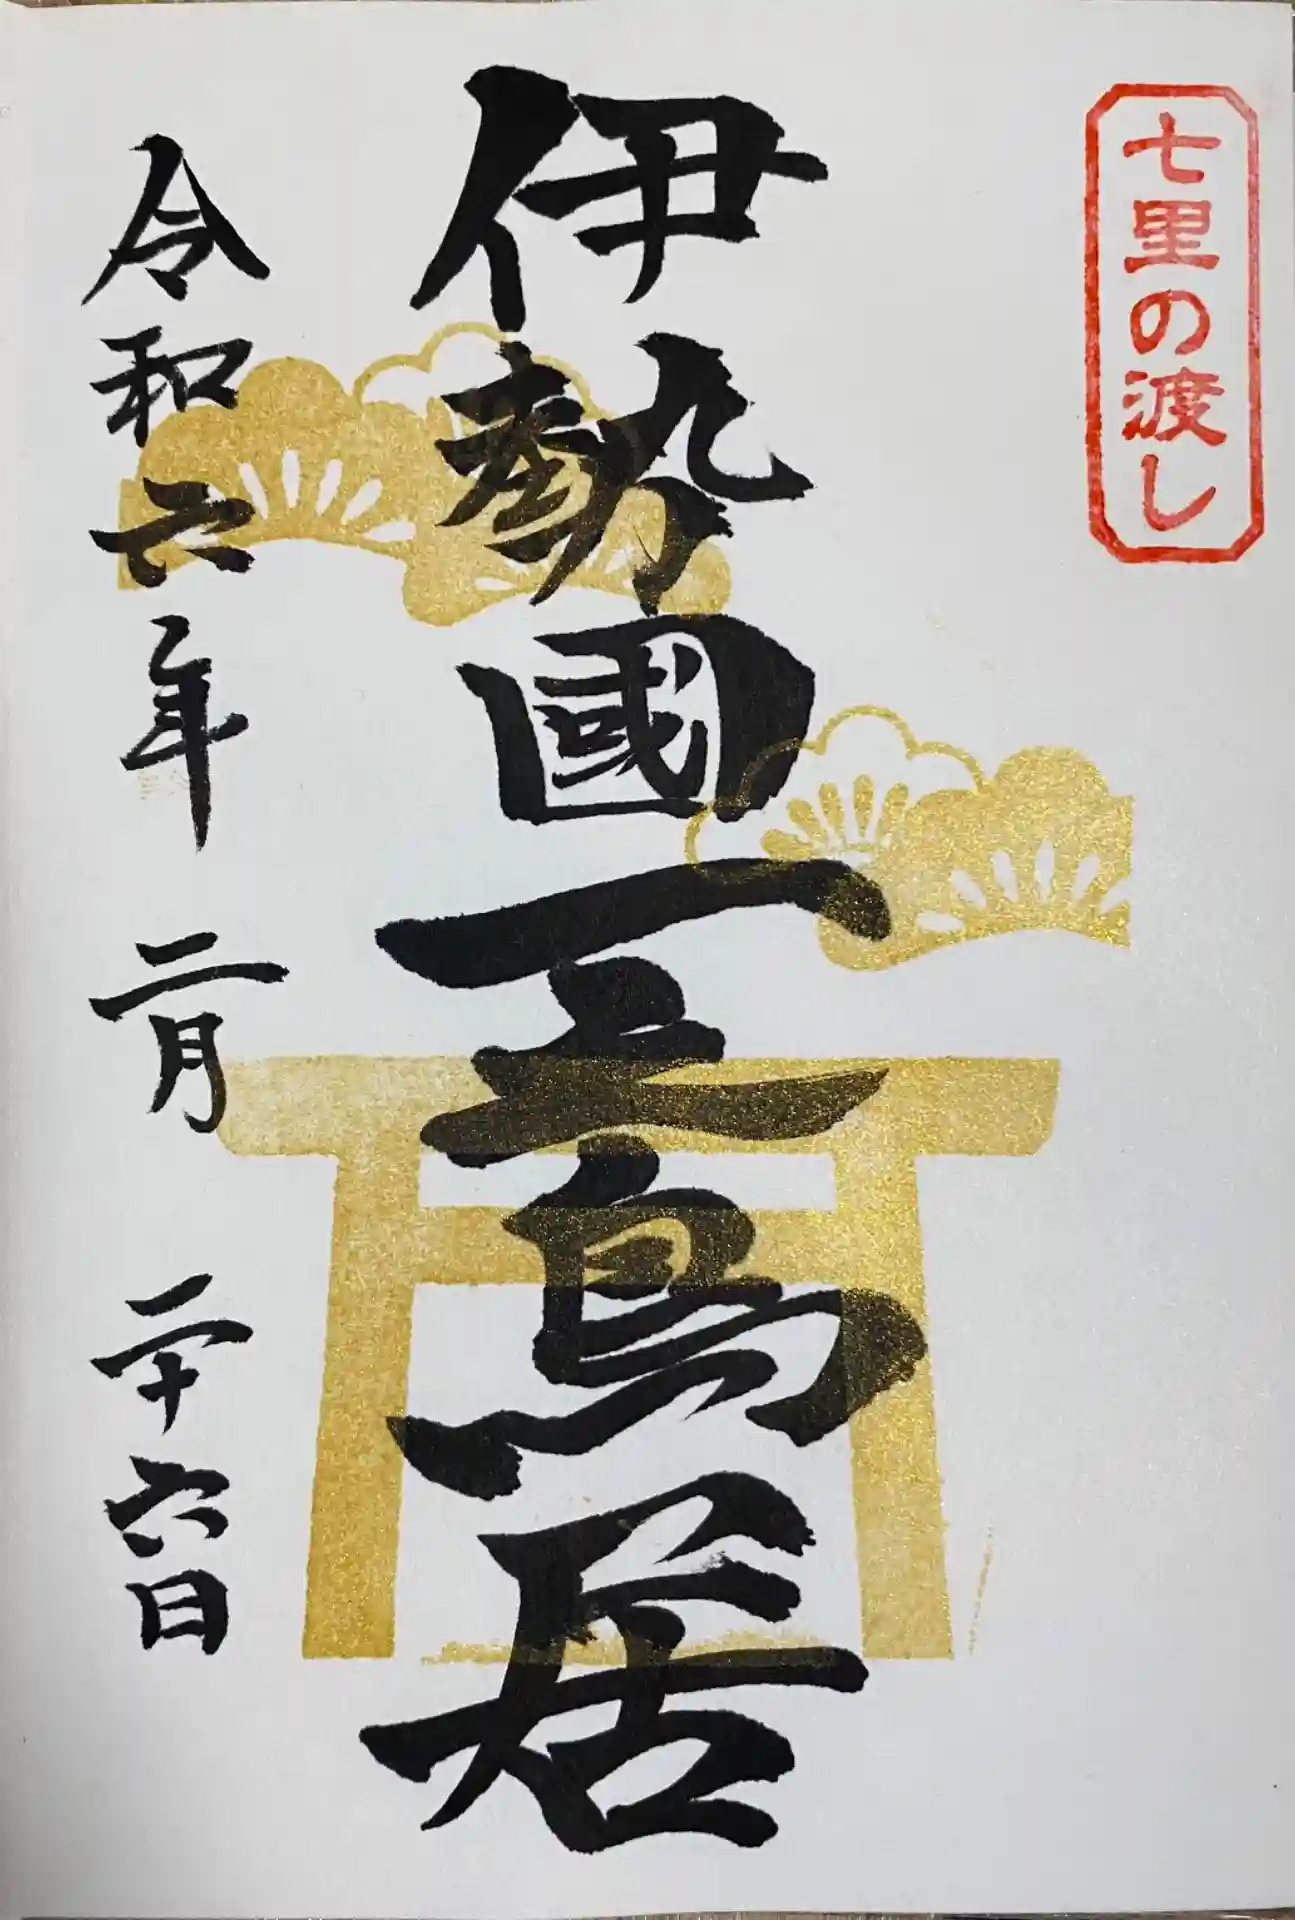 七里の渡し
伊勢國一乃鳥居
令和六年 二月 二十六日